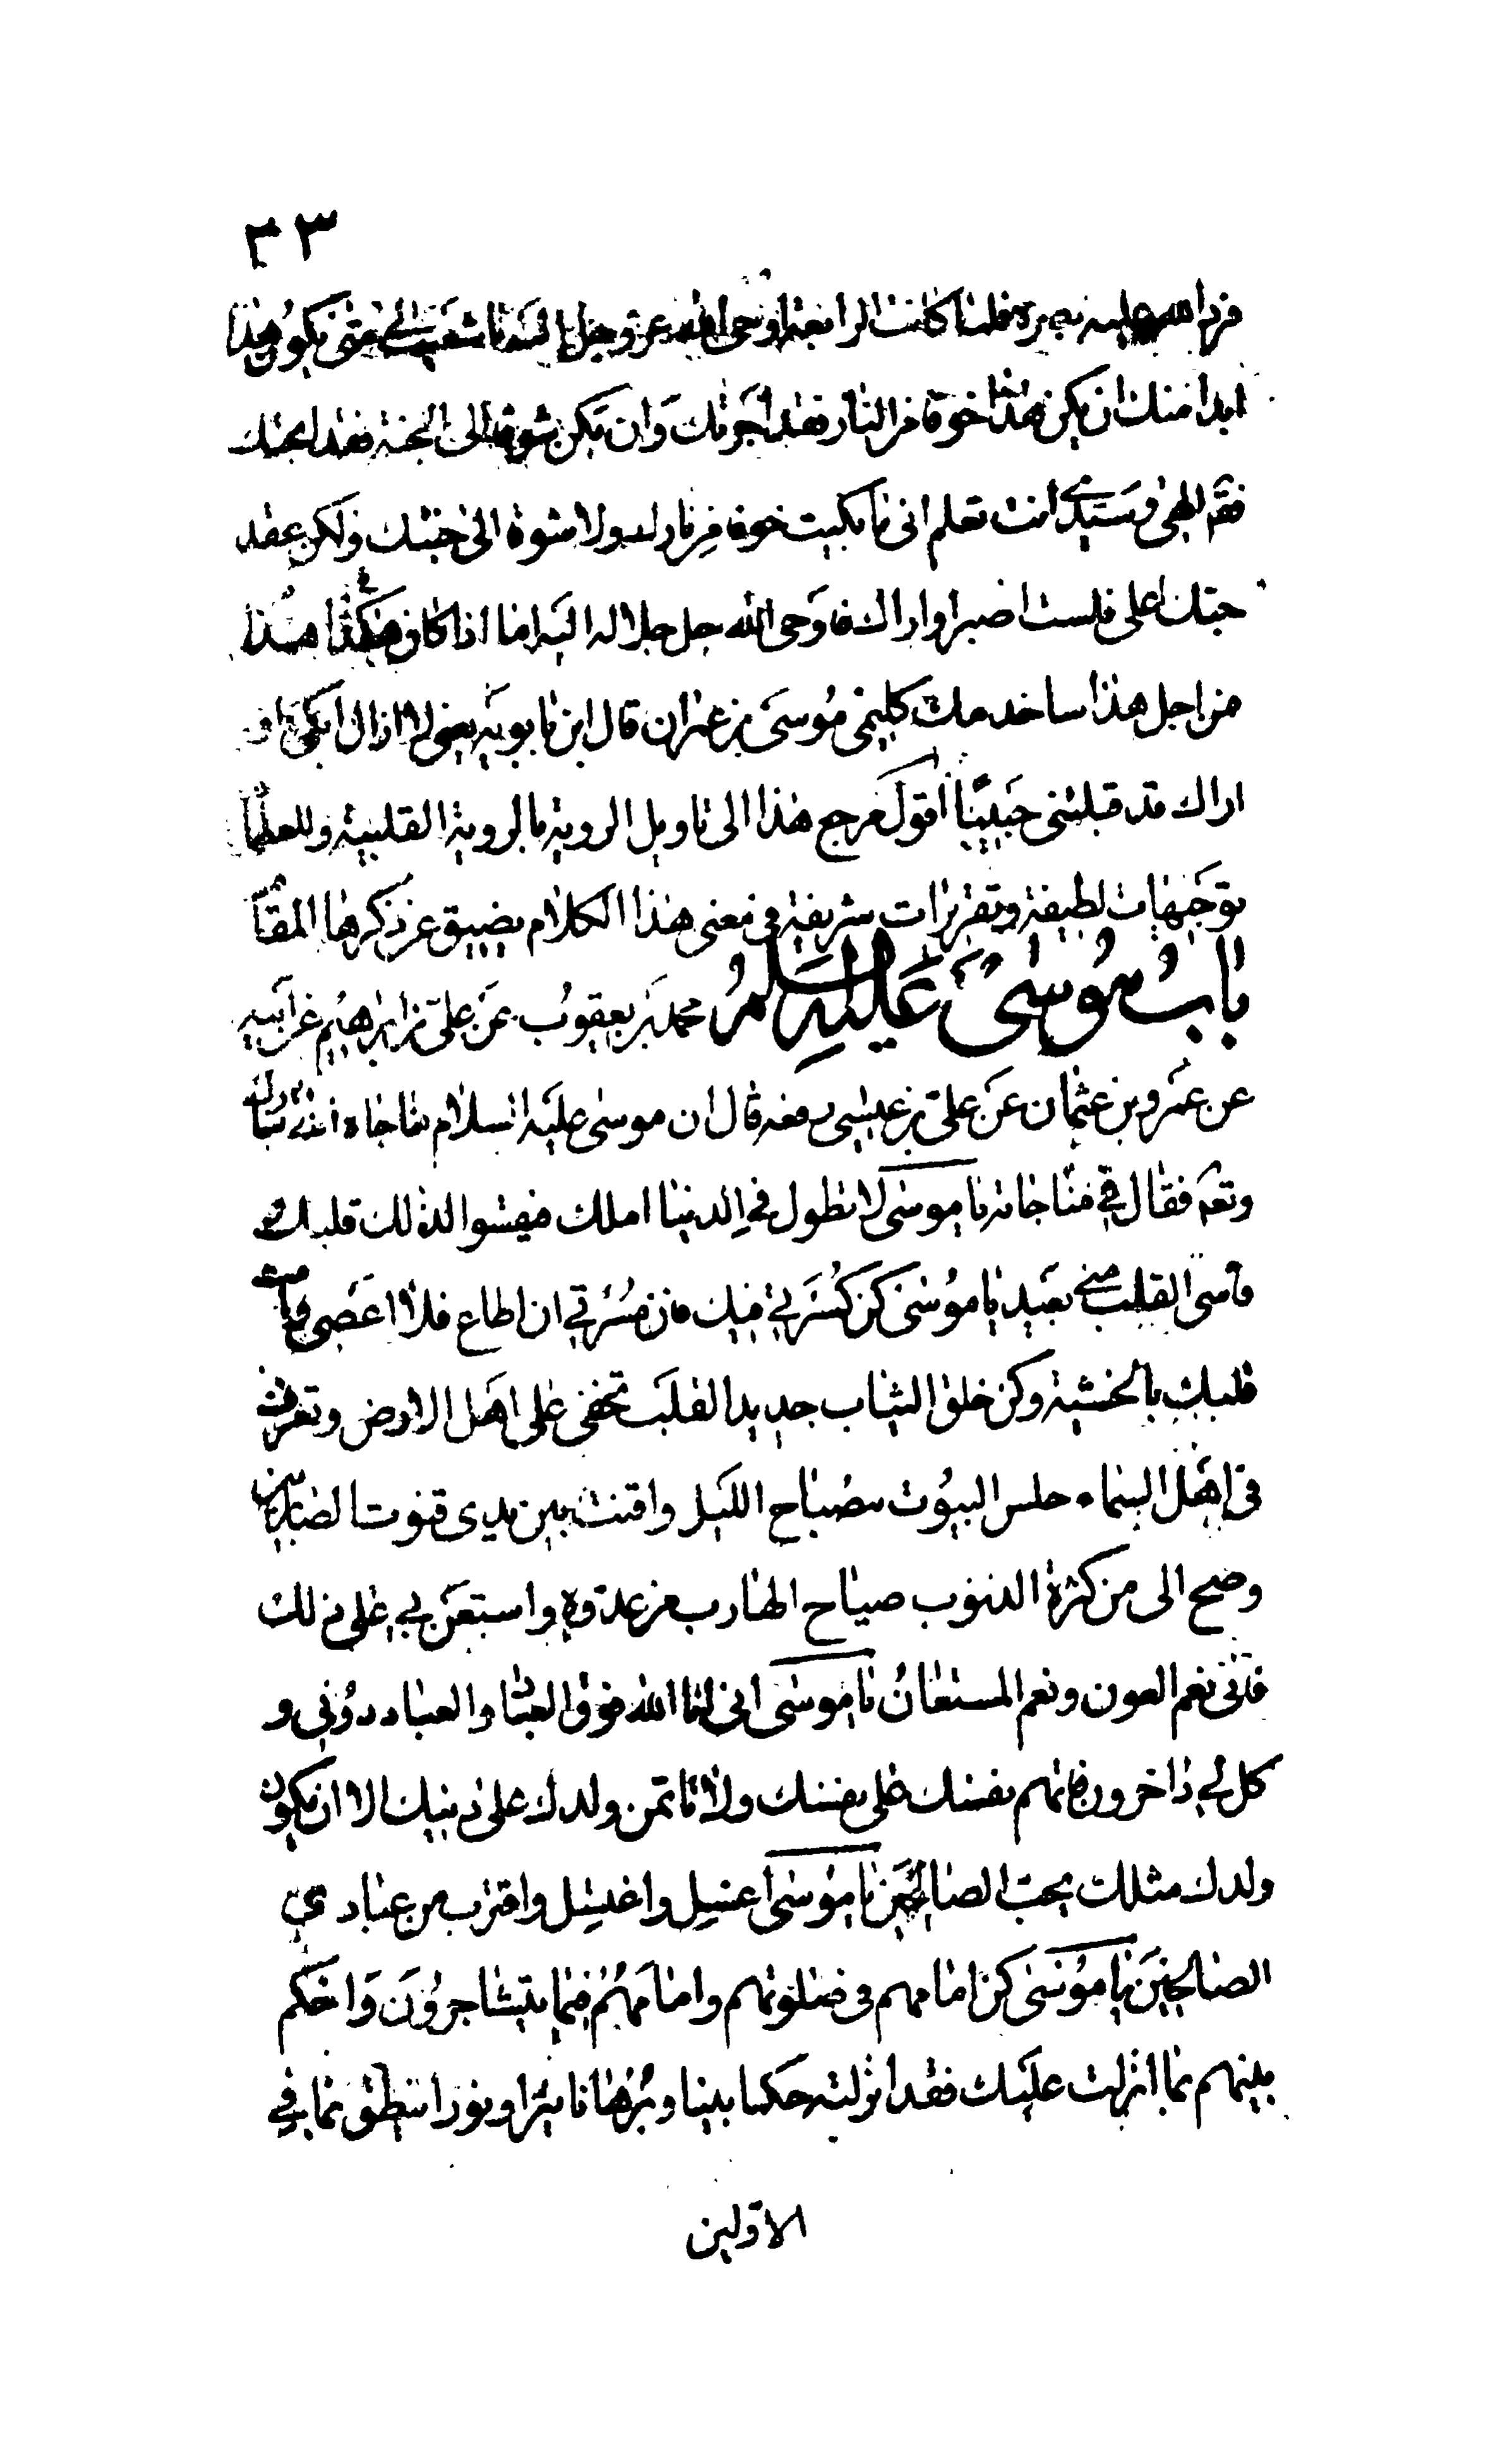 ٣٣
فرد الله عليه بصره فلما كانت الرابعة اوحى الله عز وجل اليه يا شعيب الى متى يكون هذا
ابدا منك ان يكن هذا خوفا من النار فقد اجرتك وان يكن شوقا الى الجنة فقد ابحتك
فقم الهى وسيدي انت تعلم انى ما بكيت خوفا من نارك ولا شوقا الى جنتك ولكن عقد
حبك على فلست اصبر او اراك فاوحى الله جل جلاله اليه اما اذا كان هكذا هذا
من اجل هذا ساخدمك كليمى موسى بن عمران قال ابن بابويه يعنى لا ازال ابكى او
اراك قد قبلتنى حبيبا اقول مرجع هذا الى تاويل الروية بالروية القلبية وللعلماء
توجيهات لطيفة وتقريرات شريفة فى معنى هذا الكلام يضيق عن ذكرها المقام
باب موسى عليه السلم محمد بن يعقوب عن على بن ابراهيم عن ابيه
عن عمرو بن عثمان عن على بن عيسى رفعه قال ان موسى عليه السلام ناجاه الله تبارك
وتعم فقال فى مناجاته يا موسى لا تطول فى الدنيا املك فيقسوا لذلك قلبك و
قاسى القلب منى بعيد يا موسى كن كمسرتي فيك فان مسرتي ان اطاع فلا اعصى وامت
قلبك بالخشية وكن خلق الثياب جديد القلب تخفى على اهل الارض وتعرف
فى اهل السماء حلس البيوت مصباح الليل واقنت بين يدى قنوت الصابرين
وصح الى من كثرة الذنوب صياح الهارب من عدوه واستعن بي على ذلك
فانى نعم العون ونعم المستعان يا موسى انى انا الله فوق العباد والعباد دونى و
كل لي داخرون فاتهم نفسك على نفسك ولا تاتمن ولدك على دينك الا ان يكون
ولدك مثلك يحب الصالحين يا موسى اغسل واغتسل واقترب من عبادي
الصالحين يا موسى كن امامهم فى صلوتهم وامامهم فيما يتشاجرون واحكم
بينهم بما انزلت عليك فقد انزلته حكما بينا وبرهانا نيرا ونورا ينطق بما في
الاولين